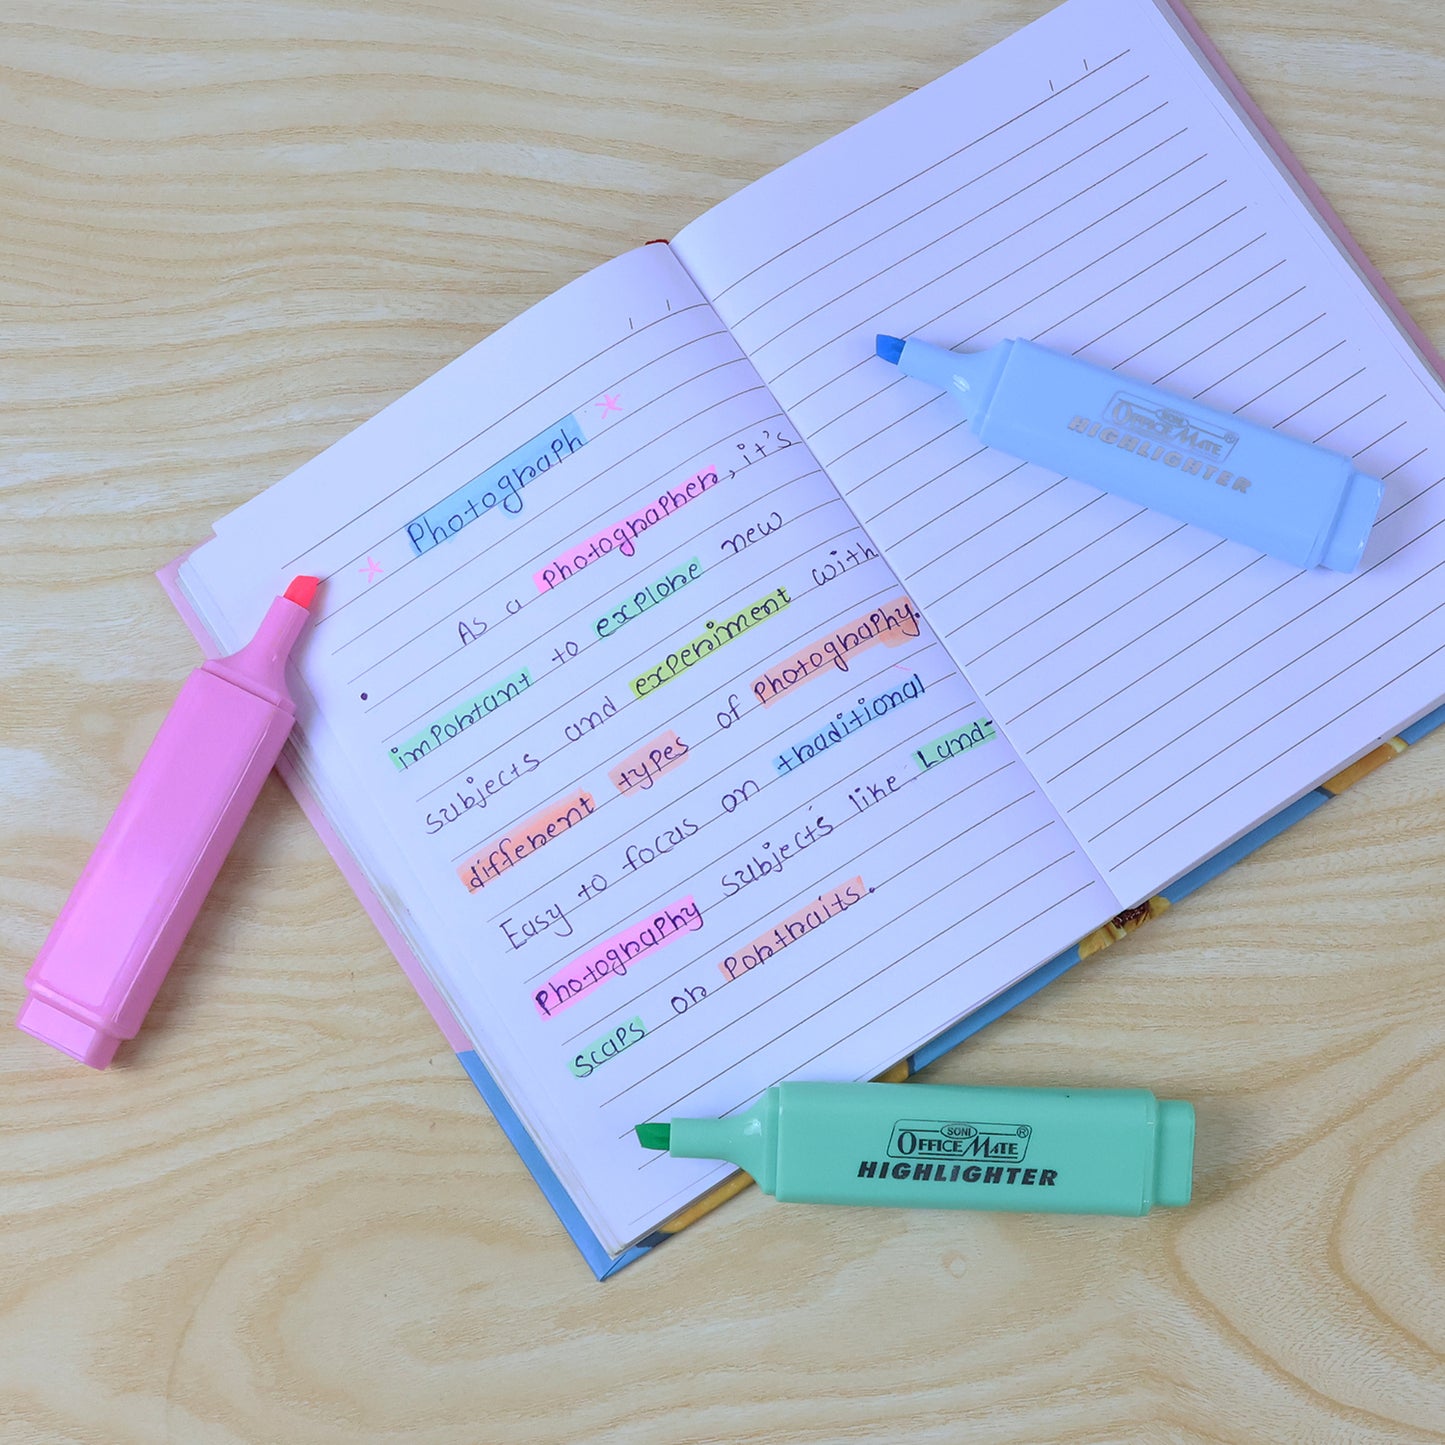 Photograph
As a photographer, it's
important to explore new
subjects and experiment with
different types of photography.
Easy to focus on traditional
Photography subjects like Land-
scaps or Portraits.
SONI
OFFICEMATE ®
HIGHLIGHTER
SONI
OFFICEMATE ®
HIGHLIGHTER